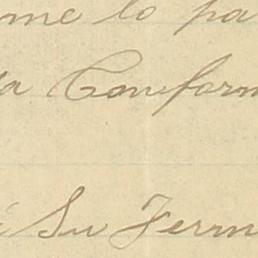 me lo pa
a Conform
Su Ferm